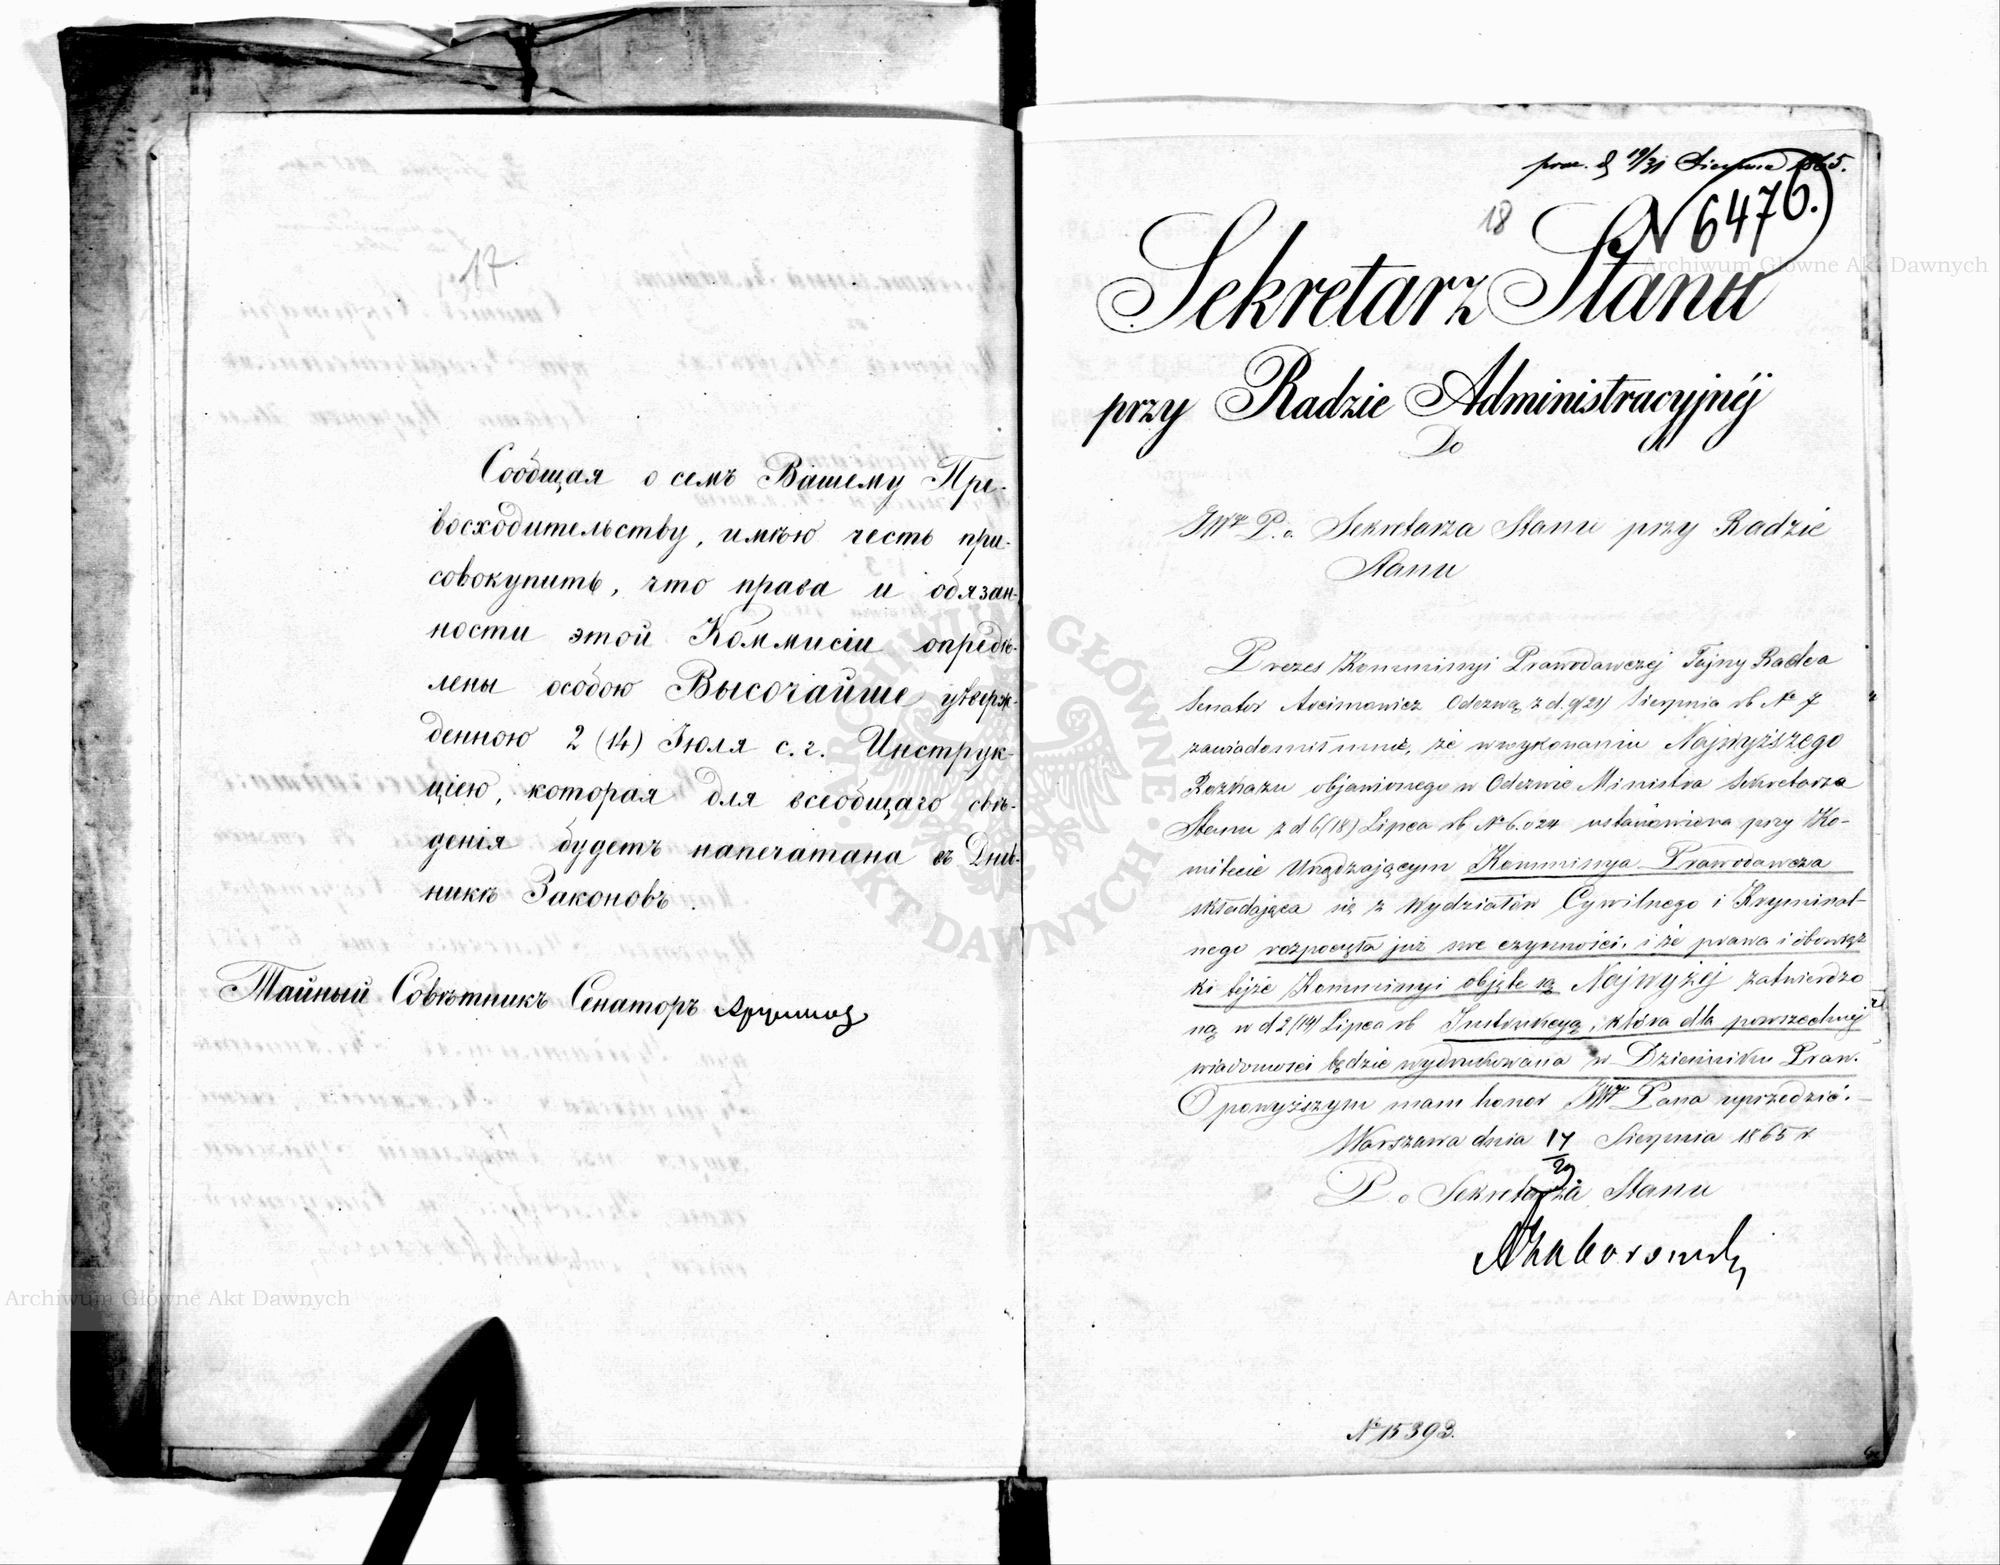 17
Сообщая о семъ Вашему Пре-
восходительству, имѣю честь при-
совокупить, что права и обязан-
ности этой Коммисіи опредѣ-
лены особою Высочайше утверж-
денною 2 (14) Іюля с. г. Инструк-
ціею, которая для всеобщаго свѣ-
денія будетъ напечатана въ Днев-
никѣ Законовъ.
Тайный Совѣтникъ Сенаторъ
prez. d 19/31 Sierpnia 1865.
18
N 6476.
Sekretarz Stanu
przy Radzie Administracyjnéj
Do
JWgo P. o. Sekretarza Stanu przy Radzie
Stanu
Prezes Kommissyi Prawodawczej Tajny Radca
Senator Arcimowicz Odezwą z d. 9/21) Sierpnia rb № 7
zawiadomił mnie, że w wykonaniu Najwyższego
Rozkazu objawionego w Odezwie Ministra Sekretarza
Stanu z d 6/(18) Lipca rb № 6.024 ustanowiona przy Ko-
mitecie Urządzającym Kommissya Prawodawcza
składająca się z Wydziałów Cywilnego i Kryminal-
nego rozpoczęła już swe czynności, i że prawa i obowiąz
ki tejże Kommissyi objęte są Najwyżej zatwierdzo
ną w d 2/(14) Lipca rb Instrukcyą, która dla powszechnej
wiadomości będzie wydrukowana w Dzienniku Praw.
O powyższym mam honor JWgo Pana uprzedzić.
Warszawa dnia 17/29 Sierpnia 1865 r
P. o Sekretarza Stanu
AZaborowski
№ 15393.
ARCHIWUM GŁÓWNE AKT DAWNYCH
Archiwum Główne Akt Dawnych
Archiwum Główne Akt Dawnych